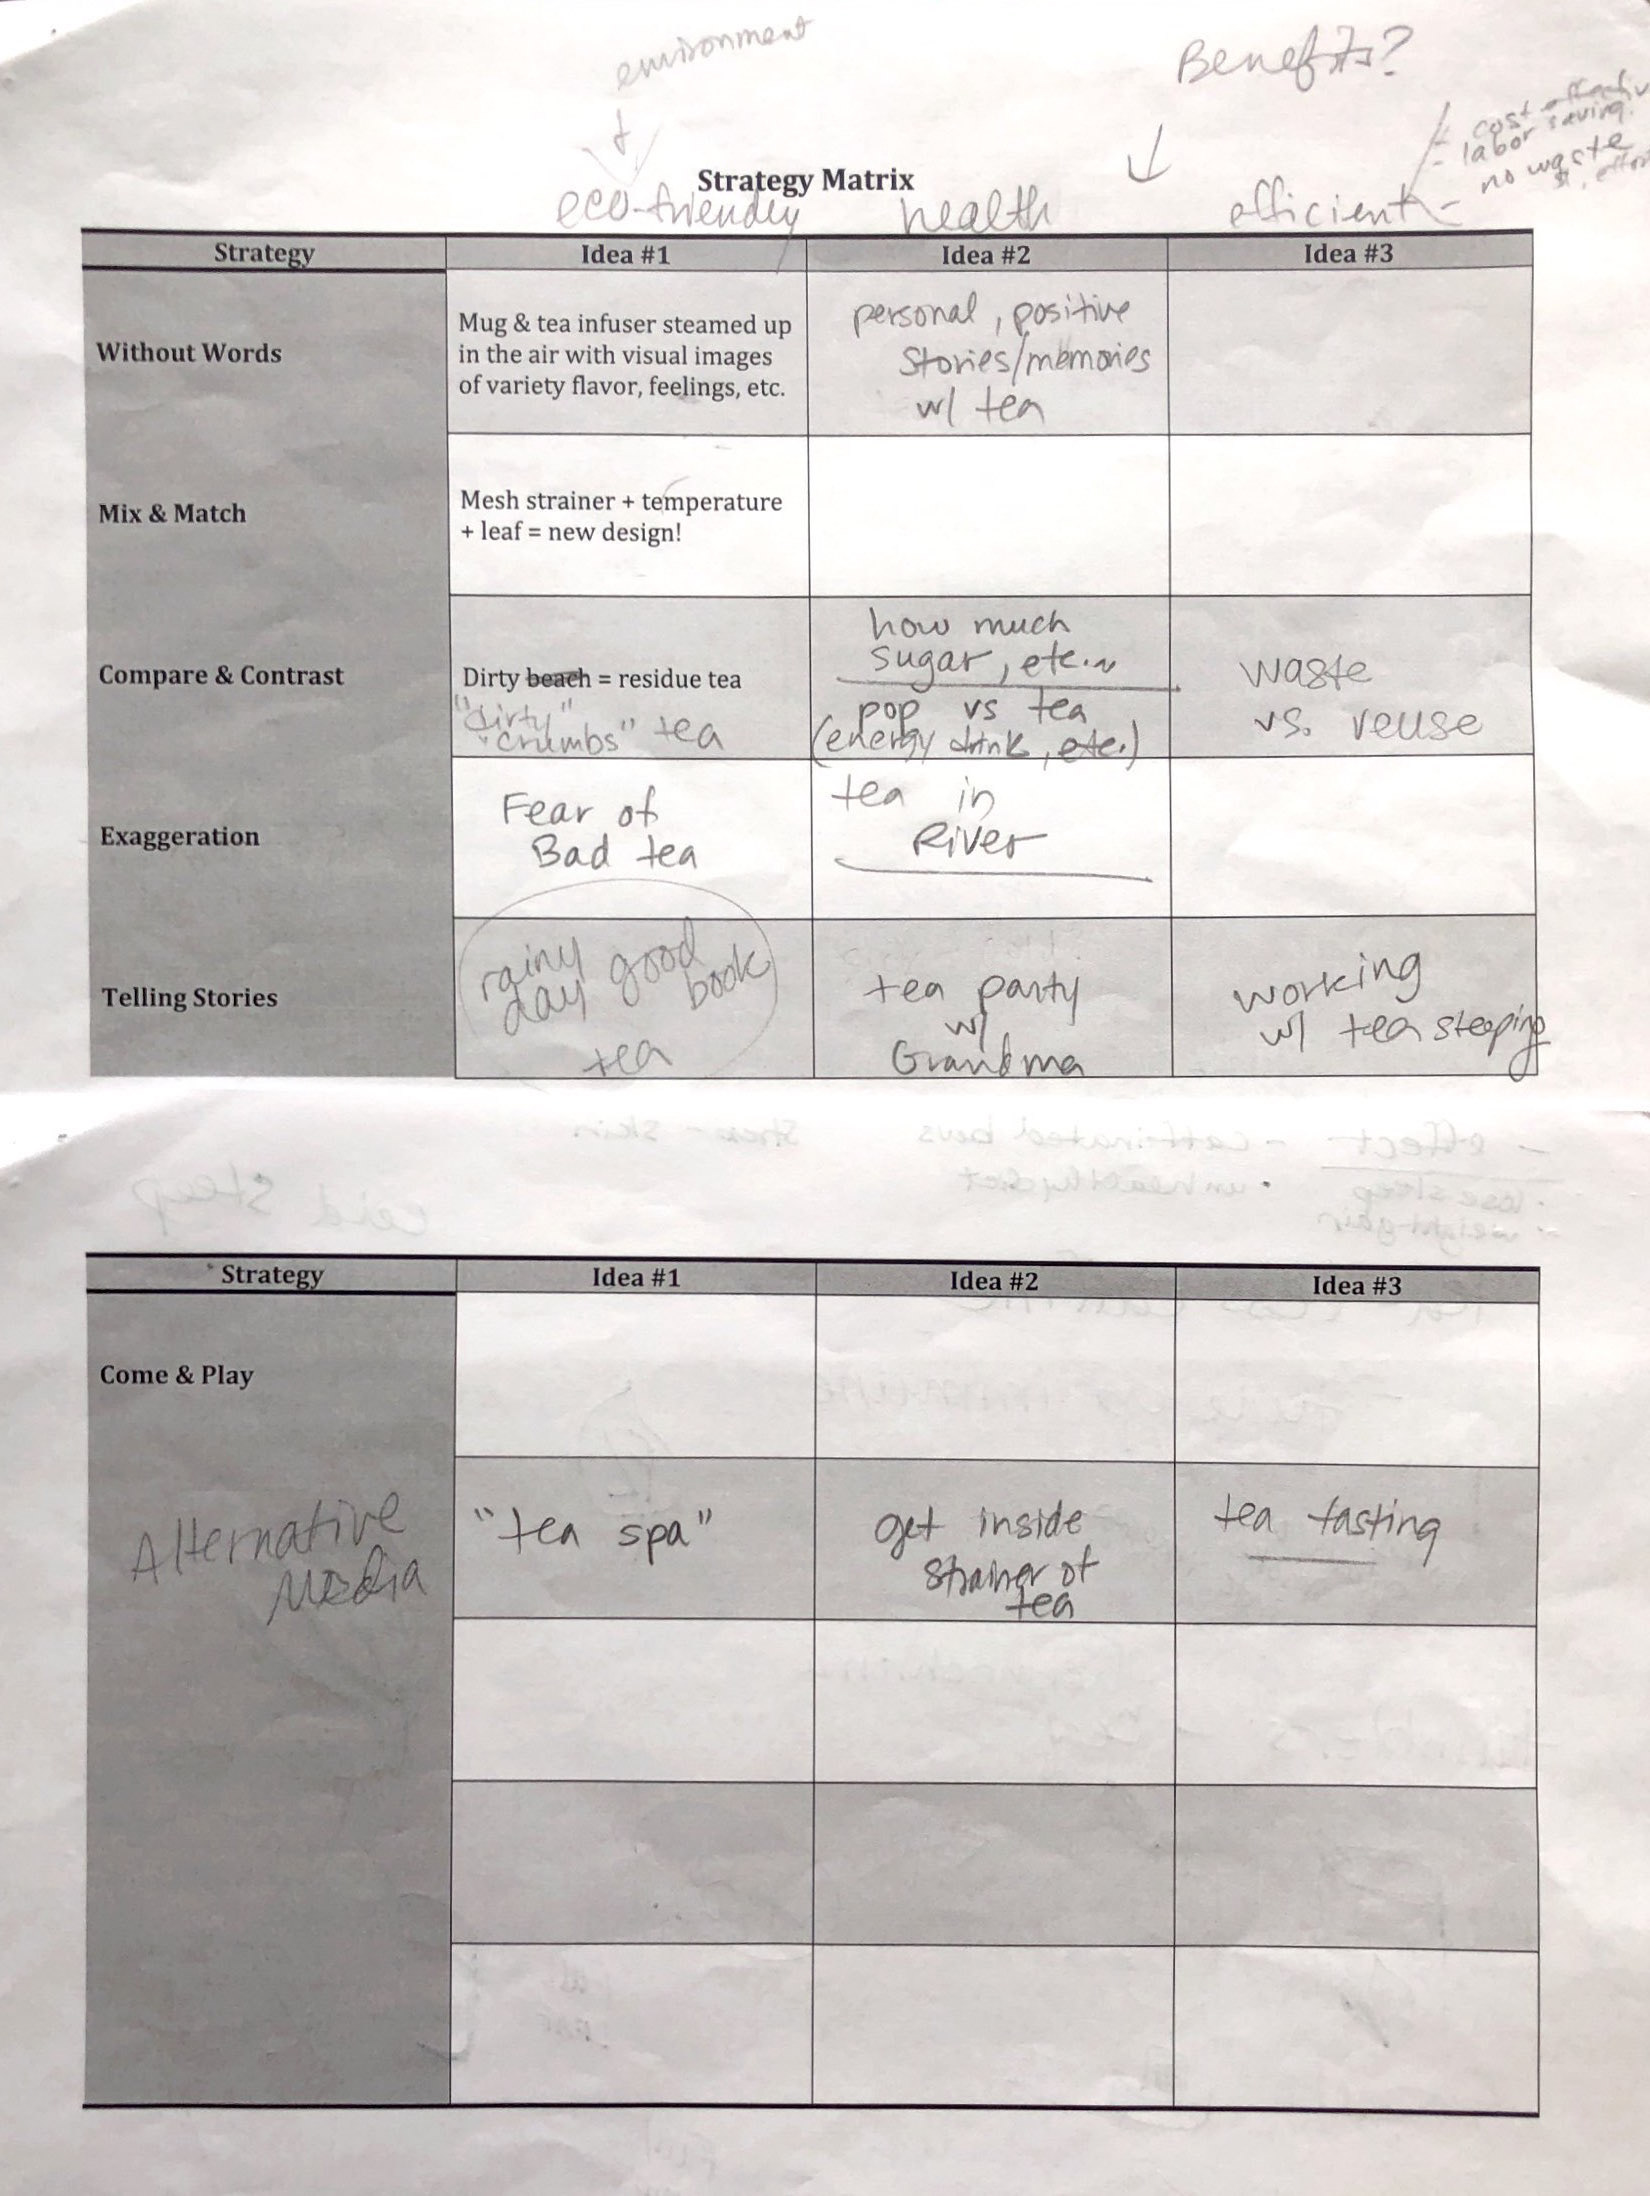 environment
Benefits?
cost effectiv
- labor saving
no waste
Strategy Matrix
eco-friendly health efficient -
Strategy Idea #1 Idea #2 Idea #3
Without Words
Mug & tea infuser steamed up
in the air with visual images
of variety flavor, feelings, etc.
personal, positive
stories/memories
w/ tea
Mix & Match
Mesh strainer + temperature
+ leaf = new design!
Compare & Contrast
Dirty beach = residue tea
"dirty"
"crumbs" tea
how much
sugar, etc...
pop vs tea
(energy drink, etc.)
waste
vs. reuse
Exaggeration
Fear of
Bad tea
tea in
River
Telling Stories
rainy good
day book
tea
tea party
w/
Grandma
working
w/ tea steeping
Strategy Idea #1 Idea #2 Idea #3
Come & Play
Alternative
Media
"tea spa"
get inside
strainer of
tea
tea tasting